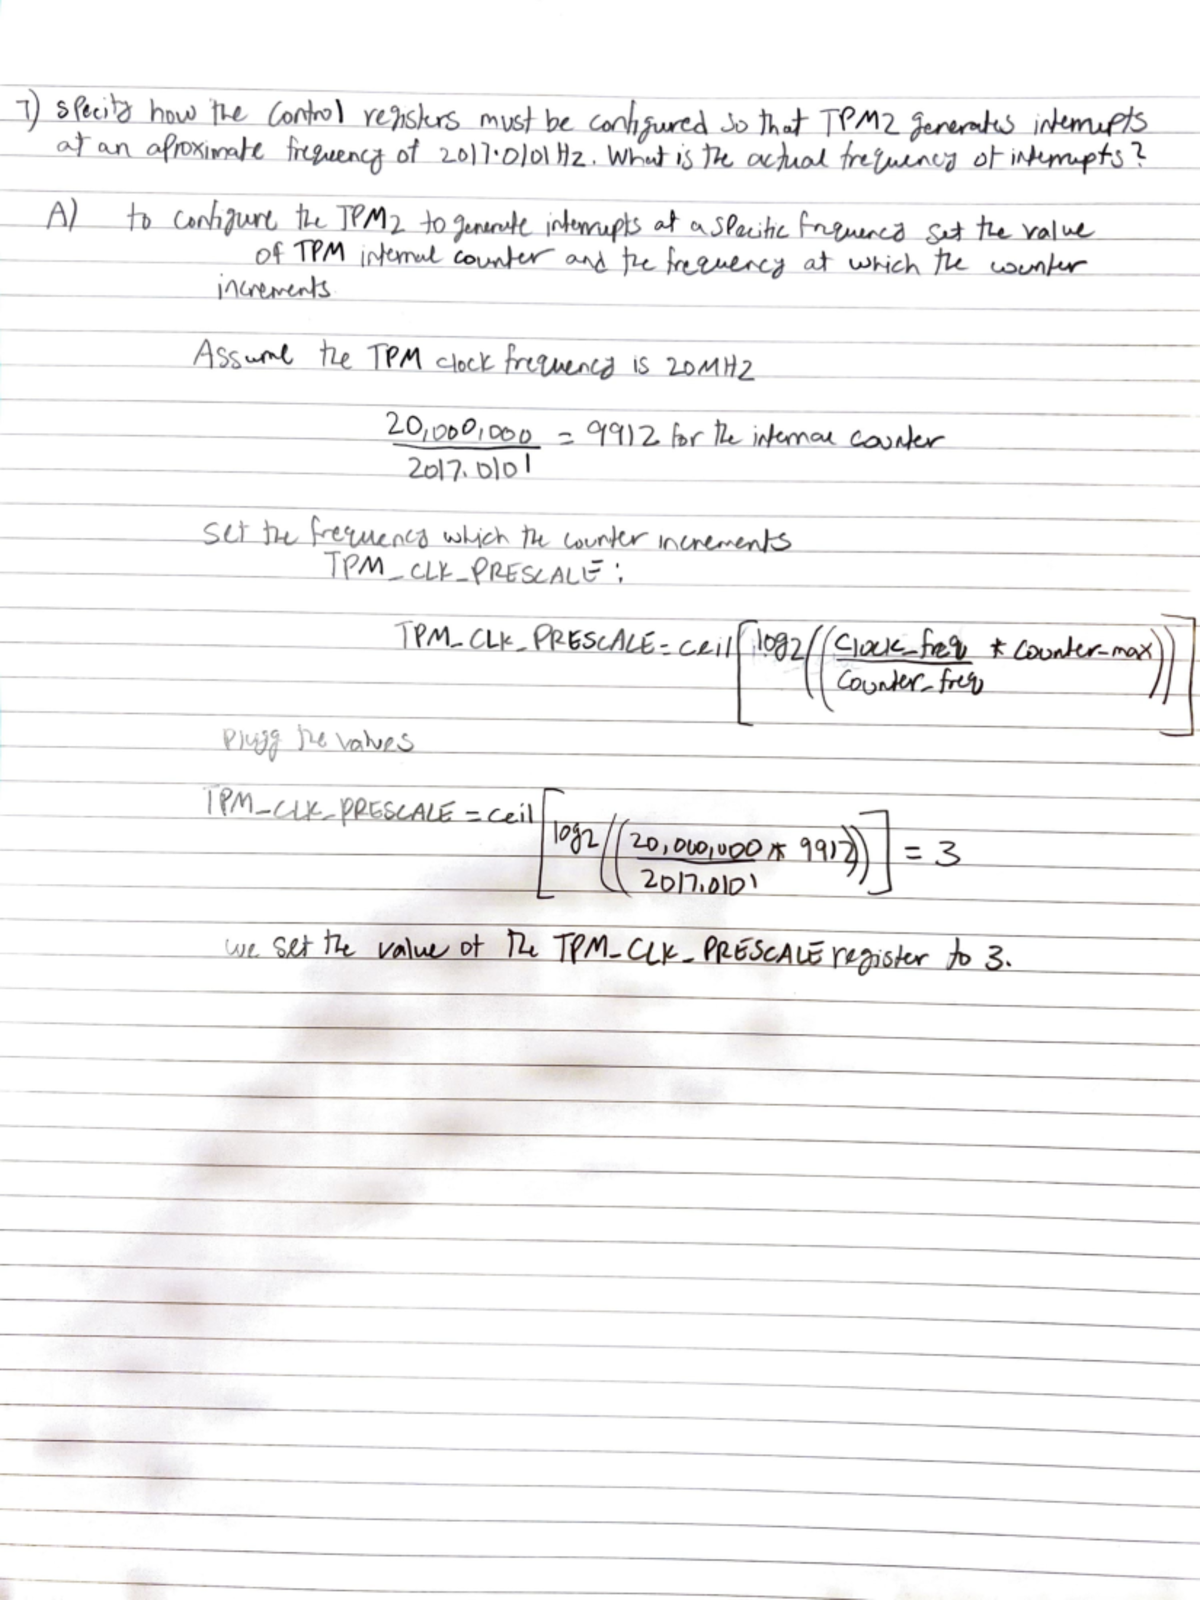 7) specify how the Control registers must be configured so that TPM2 generates interrupts
at an aproximate frequency of 2017.0101 Hz. What is the actual frequency of interrupts?
A) to configure the TPM2 to generate interrupts at a specific frequency set the value
of TPM internal counter and the frequency at which the counter
increments
Assume the TPM clock frequency is 20MHZ
20,000,000 = 9912 for the internal counter
2017.0101
set the frequency which the counter increments
TPM_CLK_PRESCALE:
TPM_CLK_PRESCALE = ceil[log2((Clock_freq * Counter_max))]
Counter_freq
Plugg the values
TPM_CLK_PRESCALE = ceil[log2((20,000,000 * 9912))] = 3
2017.0101
we set the value of the TPM_CLK_PRESCALE register to 3.